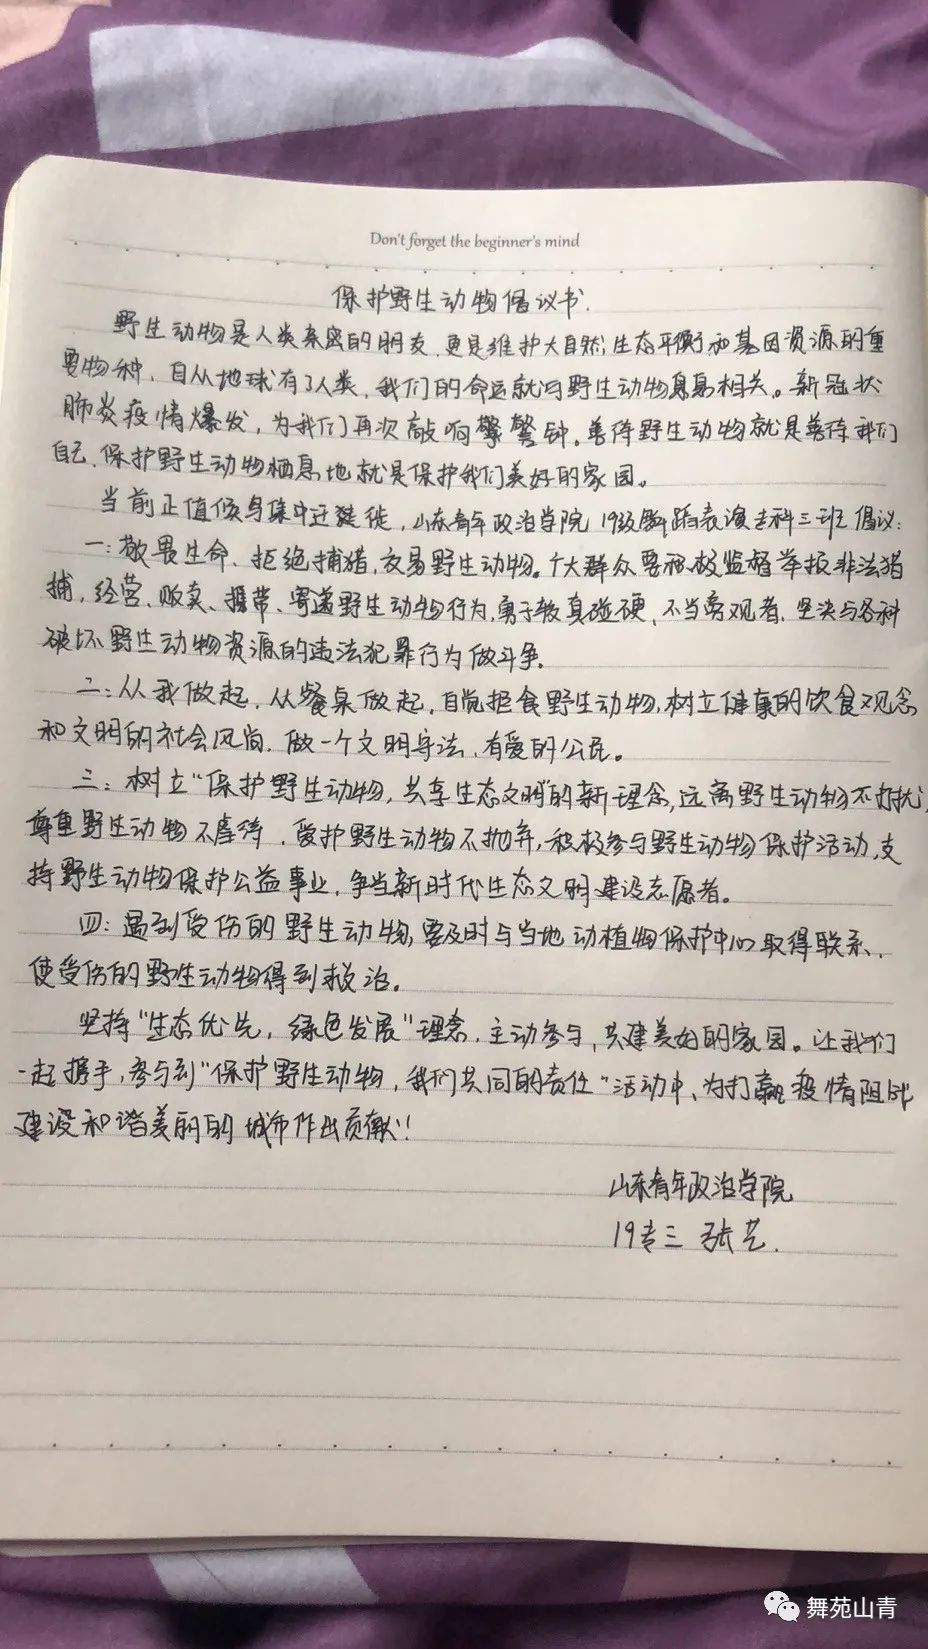 Don't forget the beginner's mind
保护野生动物倡议书.
野生动物是人类亲密的朋友,更是维护大自然生态平衡和基因资源的重
要物种,自从地球有了人类,我们的命运就与野生动物息息相关。新冠状
肺炎疫情爆发,为我们再次敲响警钟,善待野生动物就是善待我们
自己,保护野生动物栖息地就是保护我们美好的家园。
当前正值候鸟集中迁徙,山东青年政治学院19级舞蹈表演专科三班倡议:
一:敬畏生命,拒绝捕猎,交易野生动物。广大群众要积极监督举报非法猎
捕,经营、贩卖、携带、寄递野生动物行为,勇于较真碰硬,不当旁观者,坚决与各种
破坏野生动物资源的违法犯罪行为做斗争.
二:从我做起,从餐桌做起,自觉拒食野生动物,树立健康的饮食观念
和文明的社会风尚,做一个文明守法、有爱的公民。
三:树立“保护野生动物,共享生态文明”的新理念,远离野生动物不打扰,
尊重野生动物不虐待,爱护野生动物不抛弃,积极参与野生动物保护活动,支
持野生动物保护公益事业,争当新时代生态文明建设志愿者。
四:遇到受伤的野生动物,要及时与当地动植物保护中心取得联系,
使受伤的野生动物得到救治。
坚持“生态优先,绿色发展”理念,主动参与,共建美好的家园。让我们
一起携手,参与到“保护野生动物,我们共同的责任”活动中,为打赢疫情阻战
建设和谐美丽的城市作出贡献!
山东青年政治学院
19专三 张艺.
舞苑山青